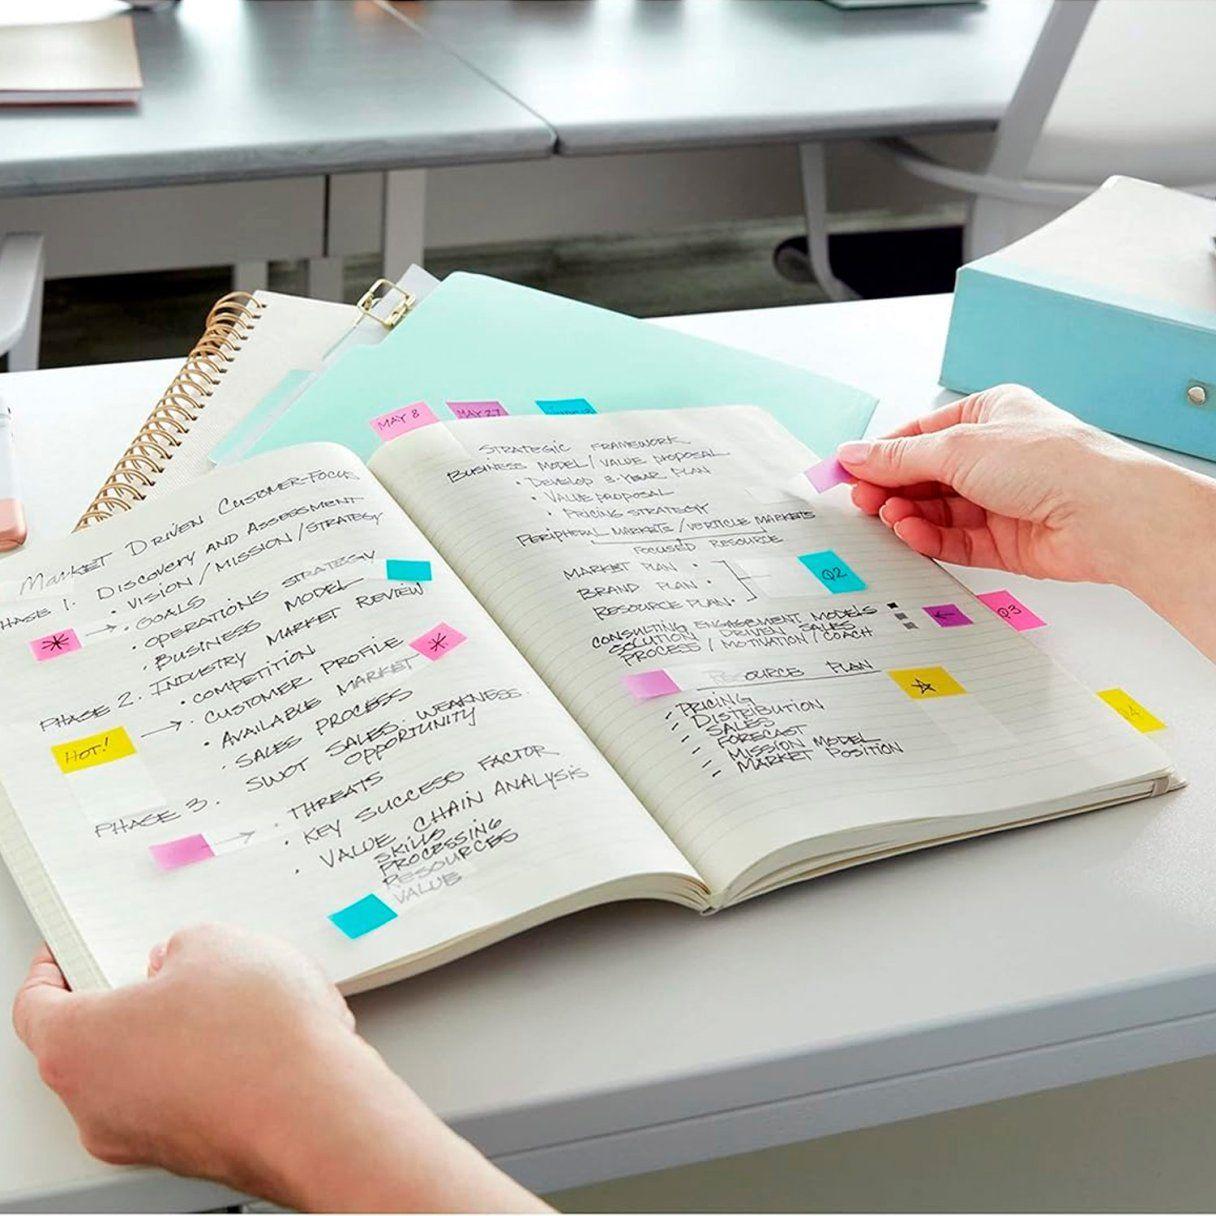 Market Driven Customer-Focus
PHASE 1: DISCOVERY AND ASSESSMENT
• VISION / MISSION / STRATEGY
* → • GOALS
• OPERATIONS STRATEGY
• BUSINESS MODEL
PHASE 2: INDUSTRY MARKET REVIEW
• COMPETITION
HOT! → • CUSTOMER PROFILE *
• AVAILABLE MARKET
• SALES PROCESS
PHASE 3. SWOT SALES: WEAKNESS
OPPORTUNITY
→ • THREATS
• KEY SUCCESS FACTOR
• VALUE CHAIN ANALYSIS
SKILLS
PROCESSING
RESOURCES
VALUE
MAY 8
MAY 27
STRATEGIC FRAMEWORK
BUSINESS MODEL / VALUE PROPOSAL
• DEVELOP 3-YEAR PLAN
• VALUE PROPOSAL
• PRICING STRATEGY
PERIPHERAL MARKETS / VERTICLE MARKETS
FOCUSED RESOURCE
MARKET PLAN •
BRAND PLAN • Q2
RESOURCE PLAN •
CONSULTING ENGAGEMENT MODELS
SOLUTION DRIVEN SALES ← Q3
PROCESS / MOTIVATION / COACH
RESOURCE PLAN
- PRICING ☆
- DISTRIBUTION Q4
- SALES
- FORECAST
- MISSION MODEL
- MARKET POSITION